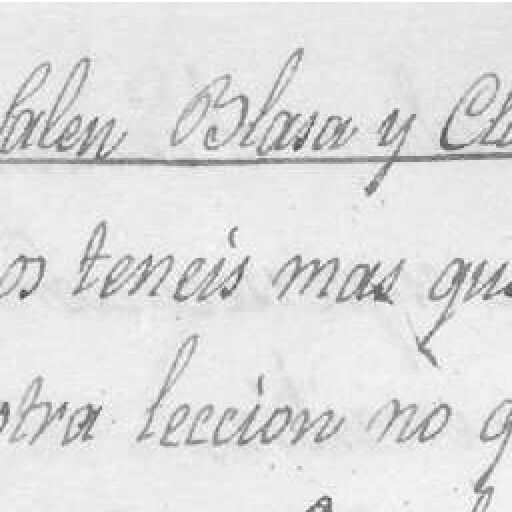 Salen Blasa y Cl
os teneis mas que
otra leccion no q